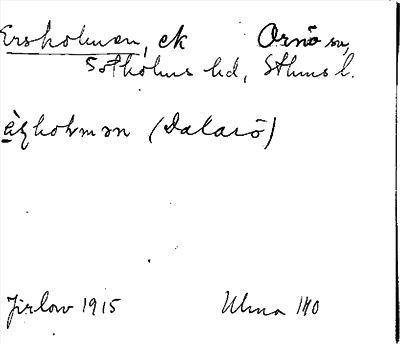 Ersholmen, ek Ornö sn,
Sotholms hd, Sthms l.
(Dalarö)
Jirlow 1915 Ulma 140